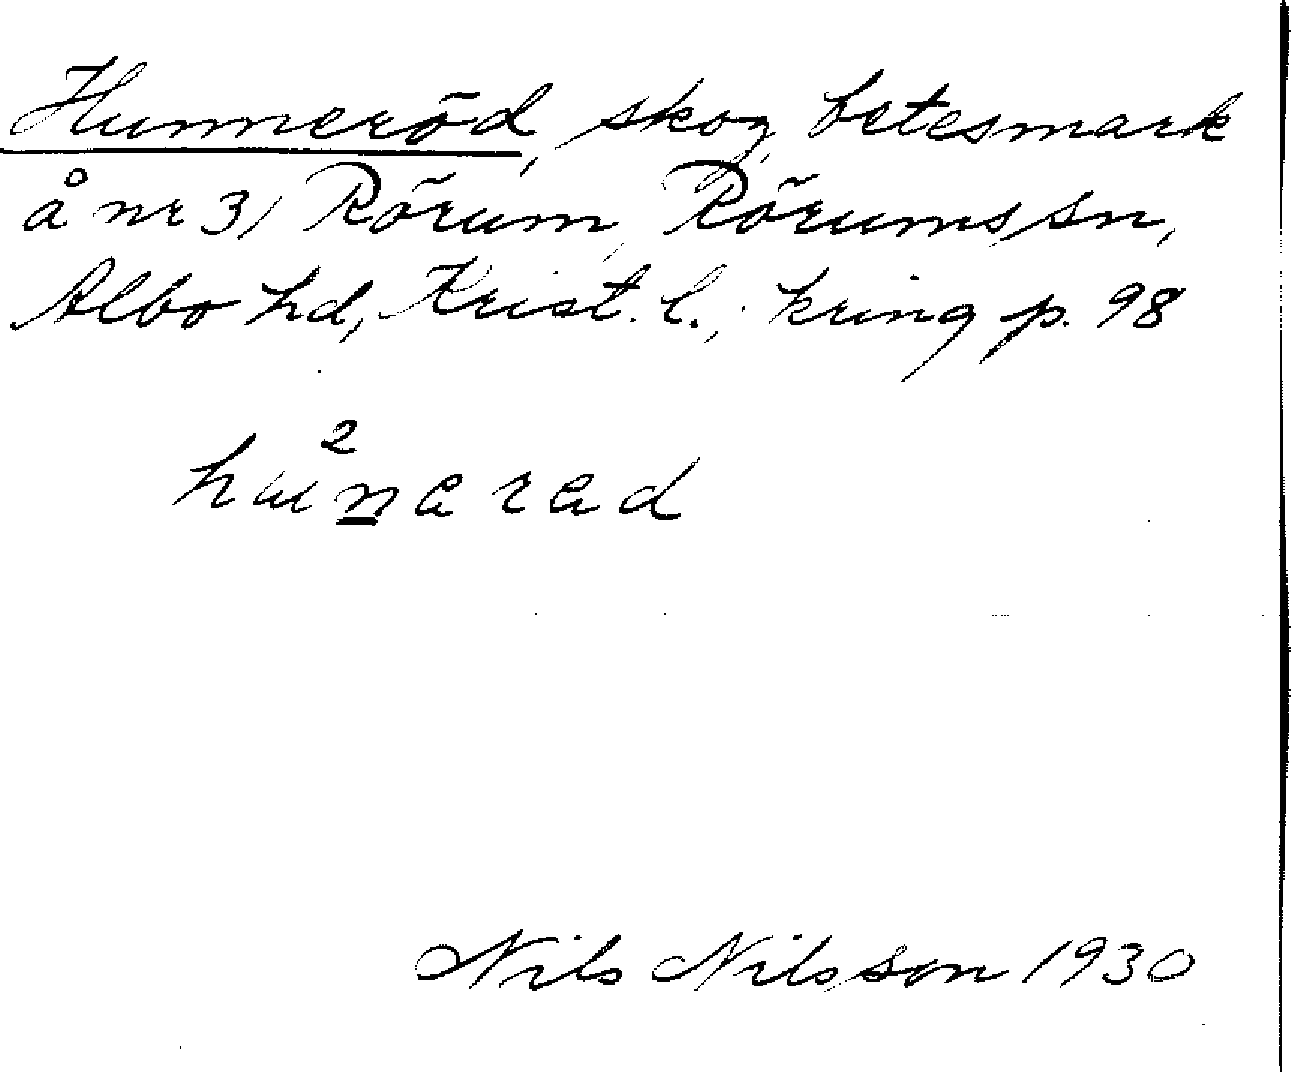 Hunneröd, skog, betesmark
å nr 3, Rörum, Rörums sn,
Albo hd, Krist. l.; kring p. 98
2
Nils Nilsson 1930